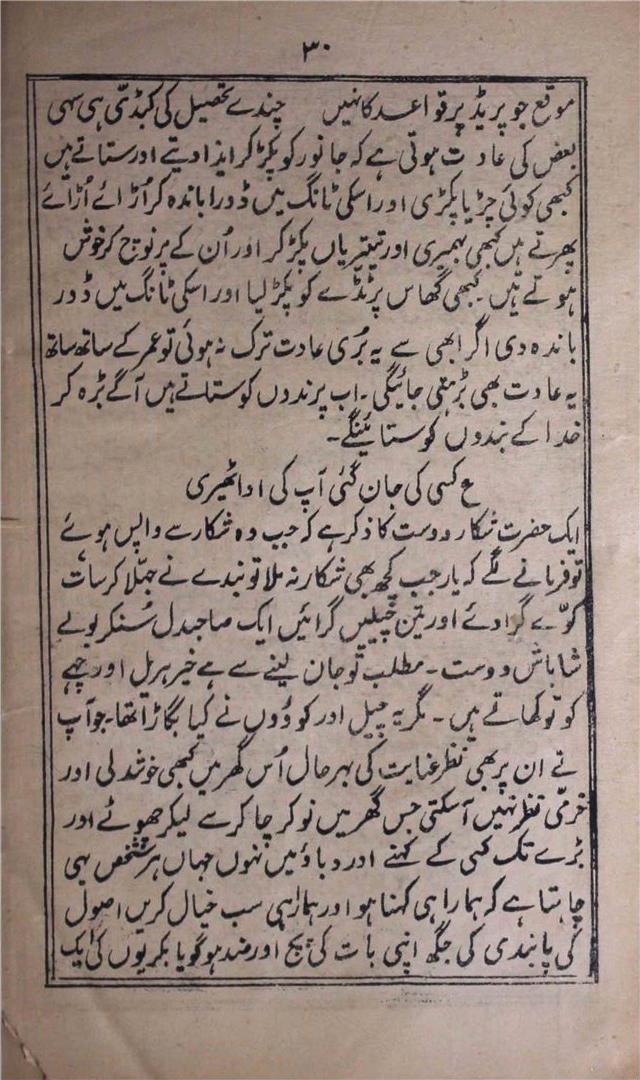 ۳۰
موقع جو پریڈ پر قواعد کا نہیں چندے تحصیل کی کبڈی ہی سہی
بعض کی عادت ہوتی ہے کہ جانور کو پکڑ کر ایذا دیتے اور ستاتے ہیں
کبھی کوئی چڑیا پکڑی اور اسکی ٹانگ میں ڈورا باندہ کر اُڑائے اُڑائے
پھرتے ہیں کبھی بھمبیری اور تیتیریاں پکڑ کر اور اُن کے پر نوچ کر خوش
ہوتے ہیں ۔ کبھی گھاس پڑڈے کو پکڑ لیا اور اسکی ٹانگ میں ڈور
باندہ دی اگر ابھی سے یہ بُری عادت ترک نہ ہوئی تو عمر کے ساتھ ساتھ
یہ عادت بھی بڑہتی جائیگی ۔ اب پرندوں کو ستاتے ہیں آگے بڑہ کر
خدا کے بندوں کو ستائینگے ۔
ع کسی کی جان گئی آپ کی ادا ٹھیری
ایک حضرت شکار دوست کا ذکر ہے کہ جب وہ شکار سے واپس ہوئے
تو فرمانے لگے کہ یار جب کچھ بھی شکار نہ ملا تو بندے نے جھلا کر سات
کوّے گرا دئے اور تین چیلیں گرائیں ایک صاحبدل سُنکر بولے
شاباش دوست ۔ مطلب تو جان لینے سے ہے خیر ہریل اور چہے
کو تو کھاتے ہیں ۔ مگر یہ چیل اور کوؤں نے کیا بگاڑا تھا ۔ جو آپ
نے ان پر بھی نظر عنایت کی بہر حال اُس گھر میں کبھی خوشدلی اور
خرمی نظر نہیں آسکتی جس گھر میں نوکر چاکر سے لیکر چھوٹے اور
بڑے تک کسی کے کہنے اور دباؤ میں نہوں جہاں ہر شخص یہی
چاہتا ہے کہ ہمارا ہی کہنا ہو اور ہمارا ہی سب خیال کریں اصول
کی پابندی کی جگھ اپنی بات کی پچ اور ضد ہو گویا بکریوں کی ایک